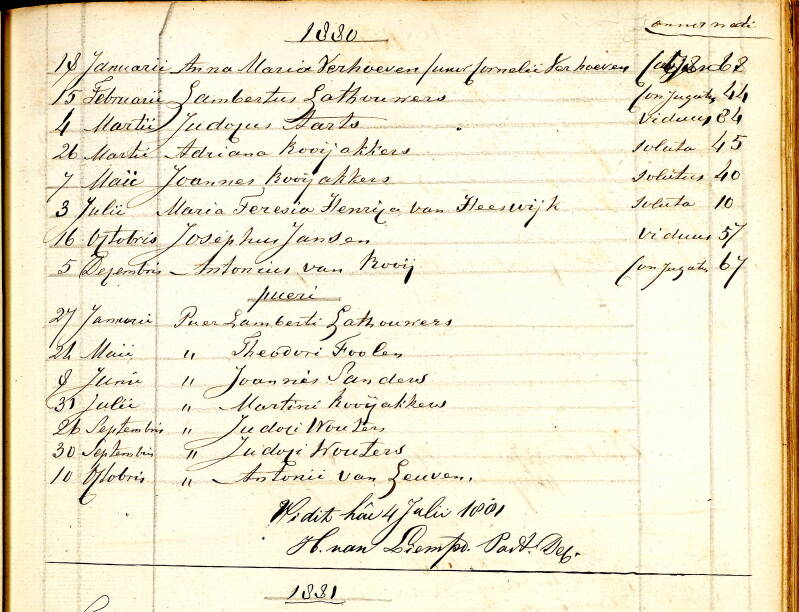 1880
annor nati
18 Januarii Anna Maria Verhoeven Cornelii Verhoeven 68
15 Februarii Lambertus Lathouwers Conjugatus 44
4 Martii Judocus Aarts viduus 84
26 Martii Adriana Rooijakkers soluta 45
7 Maii Joannes Rooijakkers solutus 40
3 Julii Maria Teresia Henrica van Heeswijk soluta 10
16 Octobris Josephus Jansen viduus 57
5 Decembris Antonius van Rooij Conjugatus 67
pueri
27 Januarii Puer Lamberti Lathouwers
24 Maii " Theodori Foolen
8 Junii " Joannes Sanders
31 Julii " Martini Rooijakkers
26 Septembris " Judoci Wouters
30 Septembris " Judoci Wouters
10 Octobris " Antonii van Leuven.
Vidit hâc 4 Julii 1881
H. van Liempd. Past. Dec.
1881